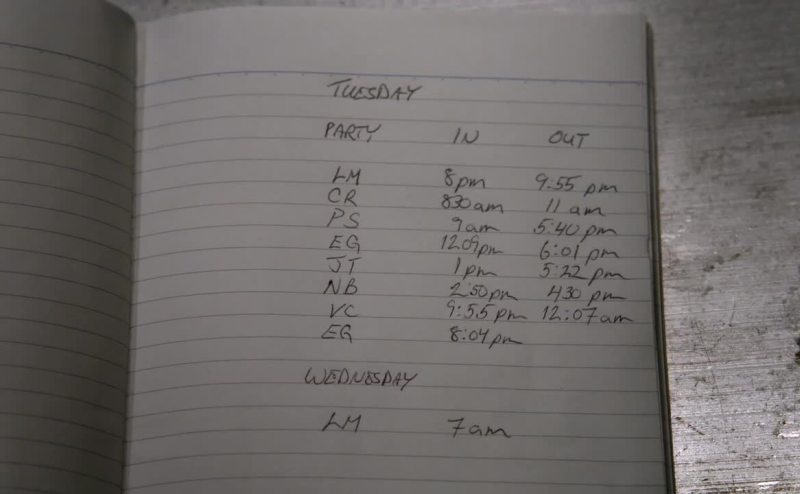 TUESDAY
PARTY IN OUT
LM 8pm 9:55 pm
CR 830am 11 am
PS 9am 5:40 pm
EG 1209pm 6:01 pm
JT 1pm 5:22 pm
NB 2:50pm 430 pm
VC 9:55pm 12:07am
EG 8:04pm
WEDNESDAY
LM 7am